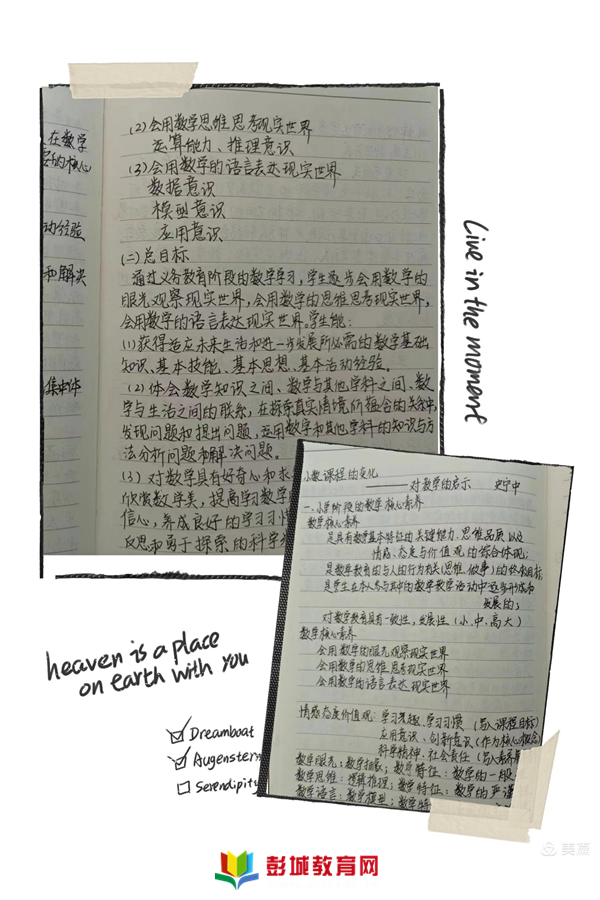 在数学
的核心
动经验
和解决
集中体
(2)会用数学思维思考现实世界
运算能力、推理意识
(3)会用数学的语言表达现实世界
数据意识
模型意识
应用意识
(二)总目标
通过义务教育阶段的数学学习,学生逐步会用数学的
眼光观察现实世界,会用数学的思维思考现实世界,
会用数学的语言表达现实世界。学生能:
(1)获得适应未来生活和进一步发展所必需的数学基础
知识、基本技能、基本思想、基本活动经验。
(2)体会数学知识之间、数学与其他学科之间、数
学与生活之间的联系,在探索真实情境所蕴含的关系中,
发现问题和提出问题,运用数学和其他学科的知识与方
法分析问题和解决问题。
(3)对数学具有好奇心和求
欣赏数学美,提高学习数学
信心,养成良好的学习习惯
反思和勇于探索的科学
Live in the moment
小数课程的变化
——对数学的启示 史宁中
一、小学阶段的数学核心素养
数学核心素养
是具有数学基本特征的关键能力、思维品质以及
情感、态度与价值观的综合体现;
是数学教育的与人的行为有关(思维、做事)的终极目标;
是学生在本人参与其中的数学教学活动中逐步形成和
发展的;
对数学教育具有一致性,发展性(小、中、高、大)
数学核心素养
会用数学的眼光观察现实世界
会用数学的思维思考现实世界
会用数学的语言表达现实世界
情感态度价值观:学习兴趣、学习习惯(写入课程目标)
应用意识、创新意识(作为核心概念)
科学精神、社会责任(写入
数学眼光:数学抽象;数学特征:数学的一般
数学思维:逻辑推理;数学特征:数学的严谨
数学语言:数学模型;数学特
heaven is a place
on earth with you
Dreamboat
Augenstern
Serendipity
美篇
彭城教育网